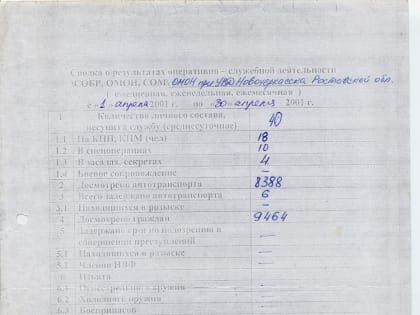 Сводка о результатах оперативно – служебной деятельности
СОБР, ОМОН, СОМ ОМОН при УВД Новочеркасска Ростовской обл.
( ежедневная, еженедельная, ежемесячная )
с «1» апреля 2001 г. по «30» апреля 2001 г.
1 Количество личного состава, несущих службу (среднесуточное) 40
1.1 На КПП, КПМ (чел) 18
1.2 В спецподразд 10
1.3 В засадах, секретах 4
1.4 Боевое сопровождение —
2 Досмотрено автотранспорта 8388
3 Всего задержано автотранспорта 6
3.1 Находящихся в розыске —
4 Досмотрено граждан 9464
5 Задержано граж по подозрению в совершении преступлений —
5.1 Находящихся в розыске —
5.2 Членов НВФ —
6 Изъято
6.1 Огнестрельного оружия —
6.2 Холодного оружия —
6.3 Боеприпасов